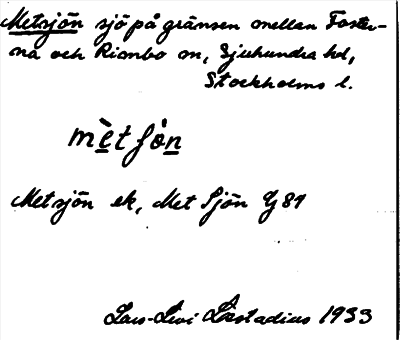 Metsjön sjö på gränsen mellan Faster-
na och Rimbo sn, Sjuhundra hd,
Stockholms l.
mètʃòn
Metsjön ek, Met Sjön Gj 81
Lars-Levi Læstadius 1933